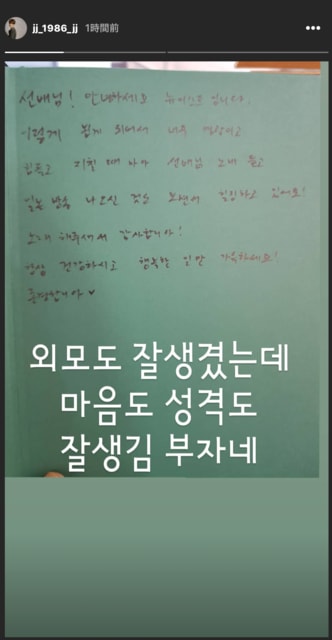 jj_1986_jj 1時間前
선배님! 안녕하세요 뉴이스트 입니다.
이렇게 뵙게 되어서 너무 영광이고
힘들고 지칠 때 마다 선배님 노래 듣고
나오신 것을 보면서 힘내고 있어요!
노래 해주셔서 감사합니다!
항상 건강하시고 행복한 일만 가득하세요!
존경합니다 ♥
외모도 잘생겼는데
마음도 성격도
잘생김 부자네